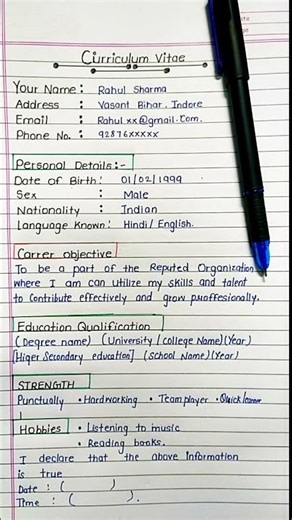 Curriculum Vitae
Your Name : Rahul Sharma
Address : Vasant Bihar, Indore
Email : Rahul xx@gmail.com.
Phone No. : 92876xxxxx
Personal Details:-
Date of Birth: 01/02/1999
Sex : Male
Nationality : Indian
Language Known: Hindi/English.
Carrer objective
To be a part of the Reputed Organization
where I am can utilize my skills and talent
to contribute effectively and grow proffesionally.
Education Qualification
(Degree name) (University/College Name)(Year)
[Higer Secondary education] (School Name)(Year)
STRENGTH
Punctually • Hardworking • Team player • Quick learner
Hobbies • Listening to music
• Reading books.
I declare that the above information
is true
Date : ( )
Time : ( ).